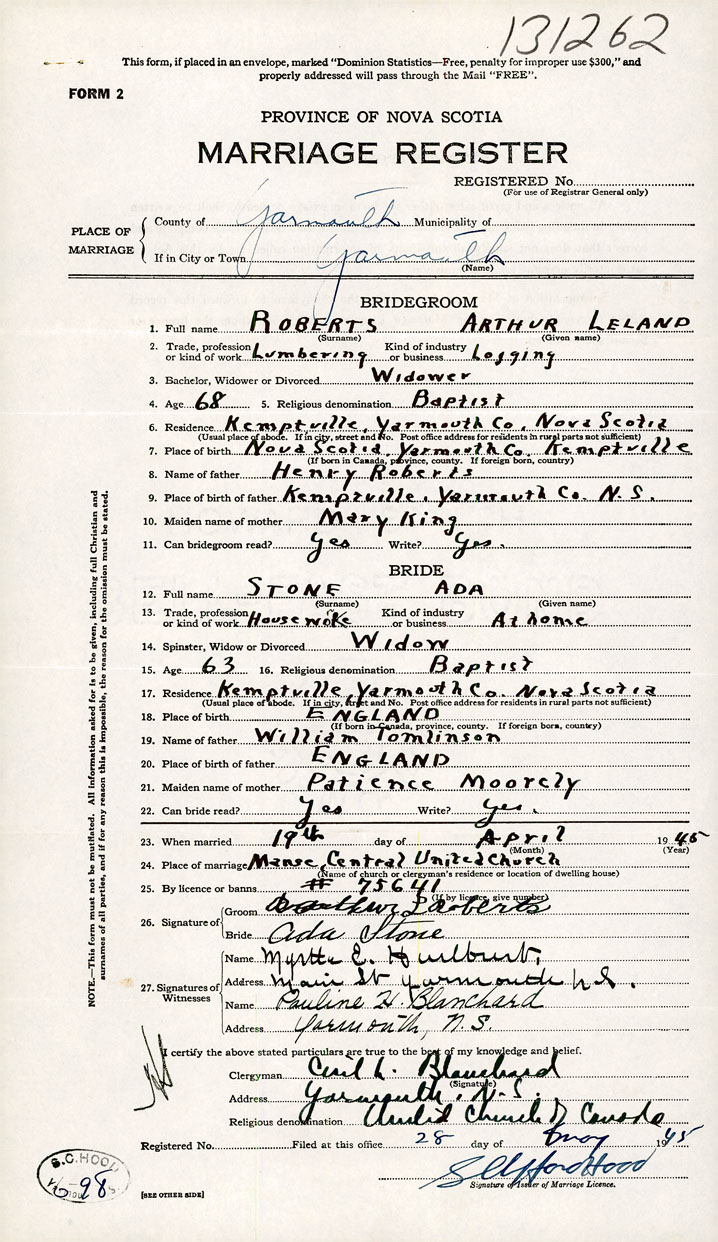 131262
This form, if placed in an envelope, marked "Dominion Statistics—Free, penalty for improper use $300," and
properly addressed will pass through the Mail "FREE".
FORM 2
PROVINCE OF NOVA SCOTIA
MARRIAGE REGISTER
REGISTERED No.
(For use of Registrar General only)
PLACE OF MARRIAGE
County of Yarmouth Municipality of
If in City or Town Yarmouth
(Name)
BRIDEGROOM
1. Full name ROBERTS ARTHUR LELAND
(Surname) (Given name)
2. Trade, profession or kind of work Lumbering Kind of industry or business Logging
3. Bachelor, Widower or Divorced Widower
4. Age 68 5. Religious denomination Baptist
6. Residence Kemptville, Yarmouth Co. Nova Scotia
(Usual place of abode. If in city, street and No. Post office address for residents in rural parts not sufficient)
7. Place of birth Nova Scotia, Yarmouth Co. Kemptville
(If born in Canada, province, county. If foreign born, country)
8. Name of father Henry Roberts
9. Place of birth of father Kemptville, Yarmouth Co. N.S.
10. Maiden name of mother Mary King
11. Can bridegroom read? Yes Write? Yes.
BRIDE
12. Full name STONE ADA
(Surname) (Given name)
13. Trade, profession or kind of work House woke Kind of industry or business At home
14. Spinster, Widow or Divorced Widow
15. Age 63 16. Religious denomination Baptist
17. Residence Kemptville, Yarmouth Co. Nova Scotia
(Usual place of abode. If in city, street and No. Post office address for residents in rural parts not sufficient)
18. Place of birth ENGLAND
(If born in Canada, province, county. If foreign born, country)
19. Name of father William Tomlinson
20. Place of birth of father ENGLAND
21. Maiden name of mother Patience Moorely
22. Can bride read? Yes Write? Yes.
23. When married 19th day of April 1945
(Month) (Year)
24. Place of marriage Manse, Central United Church
(Name of church or clergyman's residence or location of dwelling house)
25. By licence or banns # 75641
(If by licence, give number)
26. Signature of
Groom Arthur L Roberts
Bride Ada Stone
27. Signatures of Witnesses
Name Myrtle E. Hurlburt,
Address Main St Yarmouth N.S.
Name Pauline H. Blanchard
Address Yarmouth, N.S.
I certify the above stated particulars are true to the best of my knowledge and belief.
Clergyman Cecil L. Blanchard
(Signature)
Address Yarmouth, N.S.
Religious denomination United Church of Canada
Registered No. Filed at this office 28 day of May 1945
Hood
Signature of Issuer of Marriage Licence.
S.C. HOOD
98
[SEE OTHER SIDE]
NOTE.—This form must not be mutilated. All information asked for is to be given, including full Christian and
surnames of all parties, and if for any reason this is impossible, the reason for the omission must be stated.